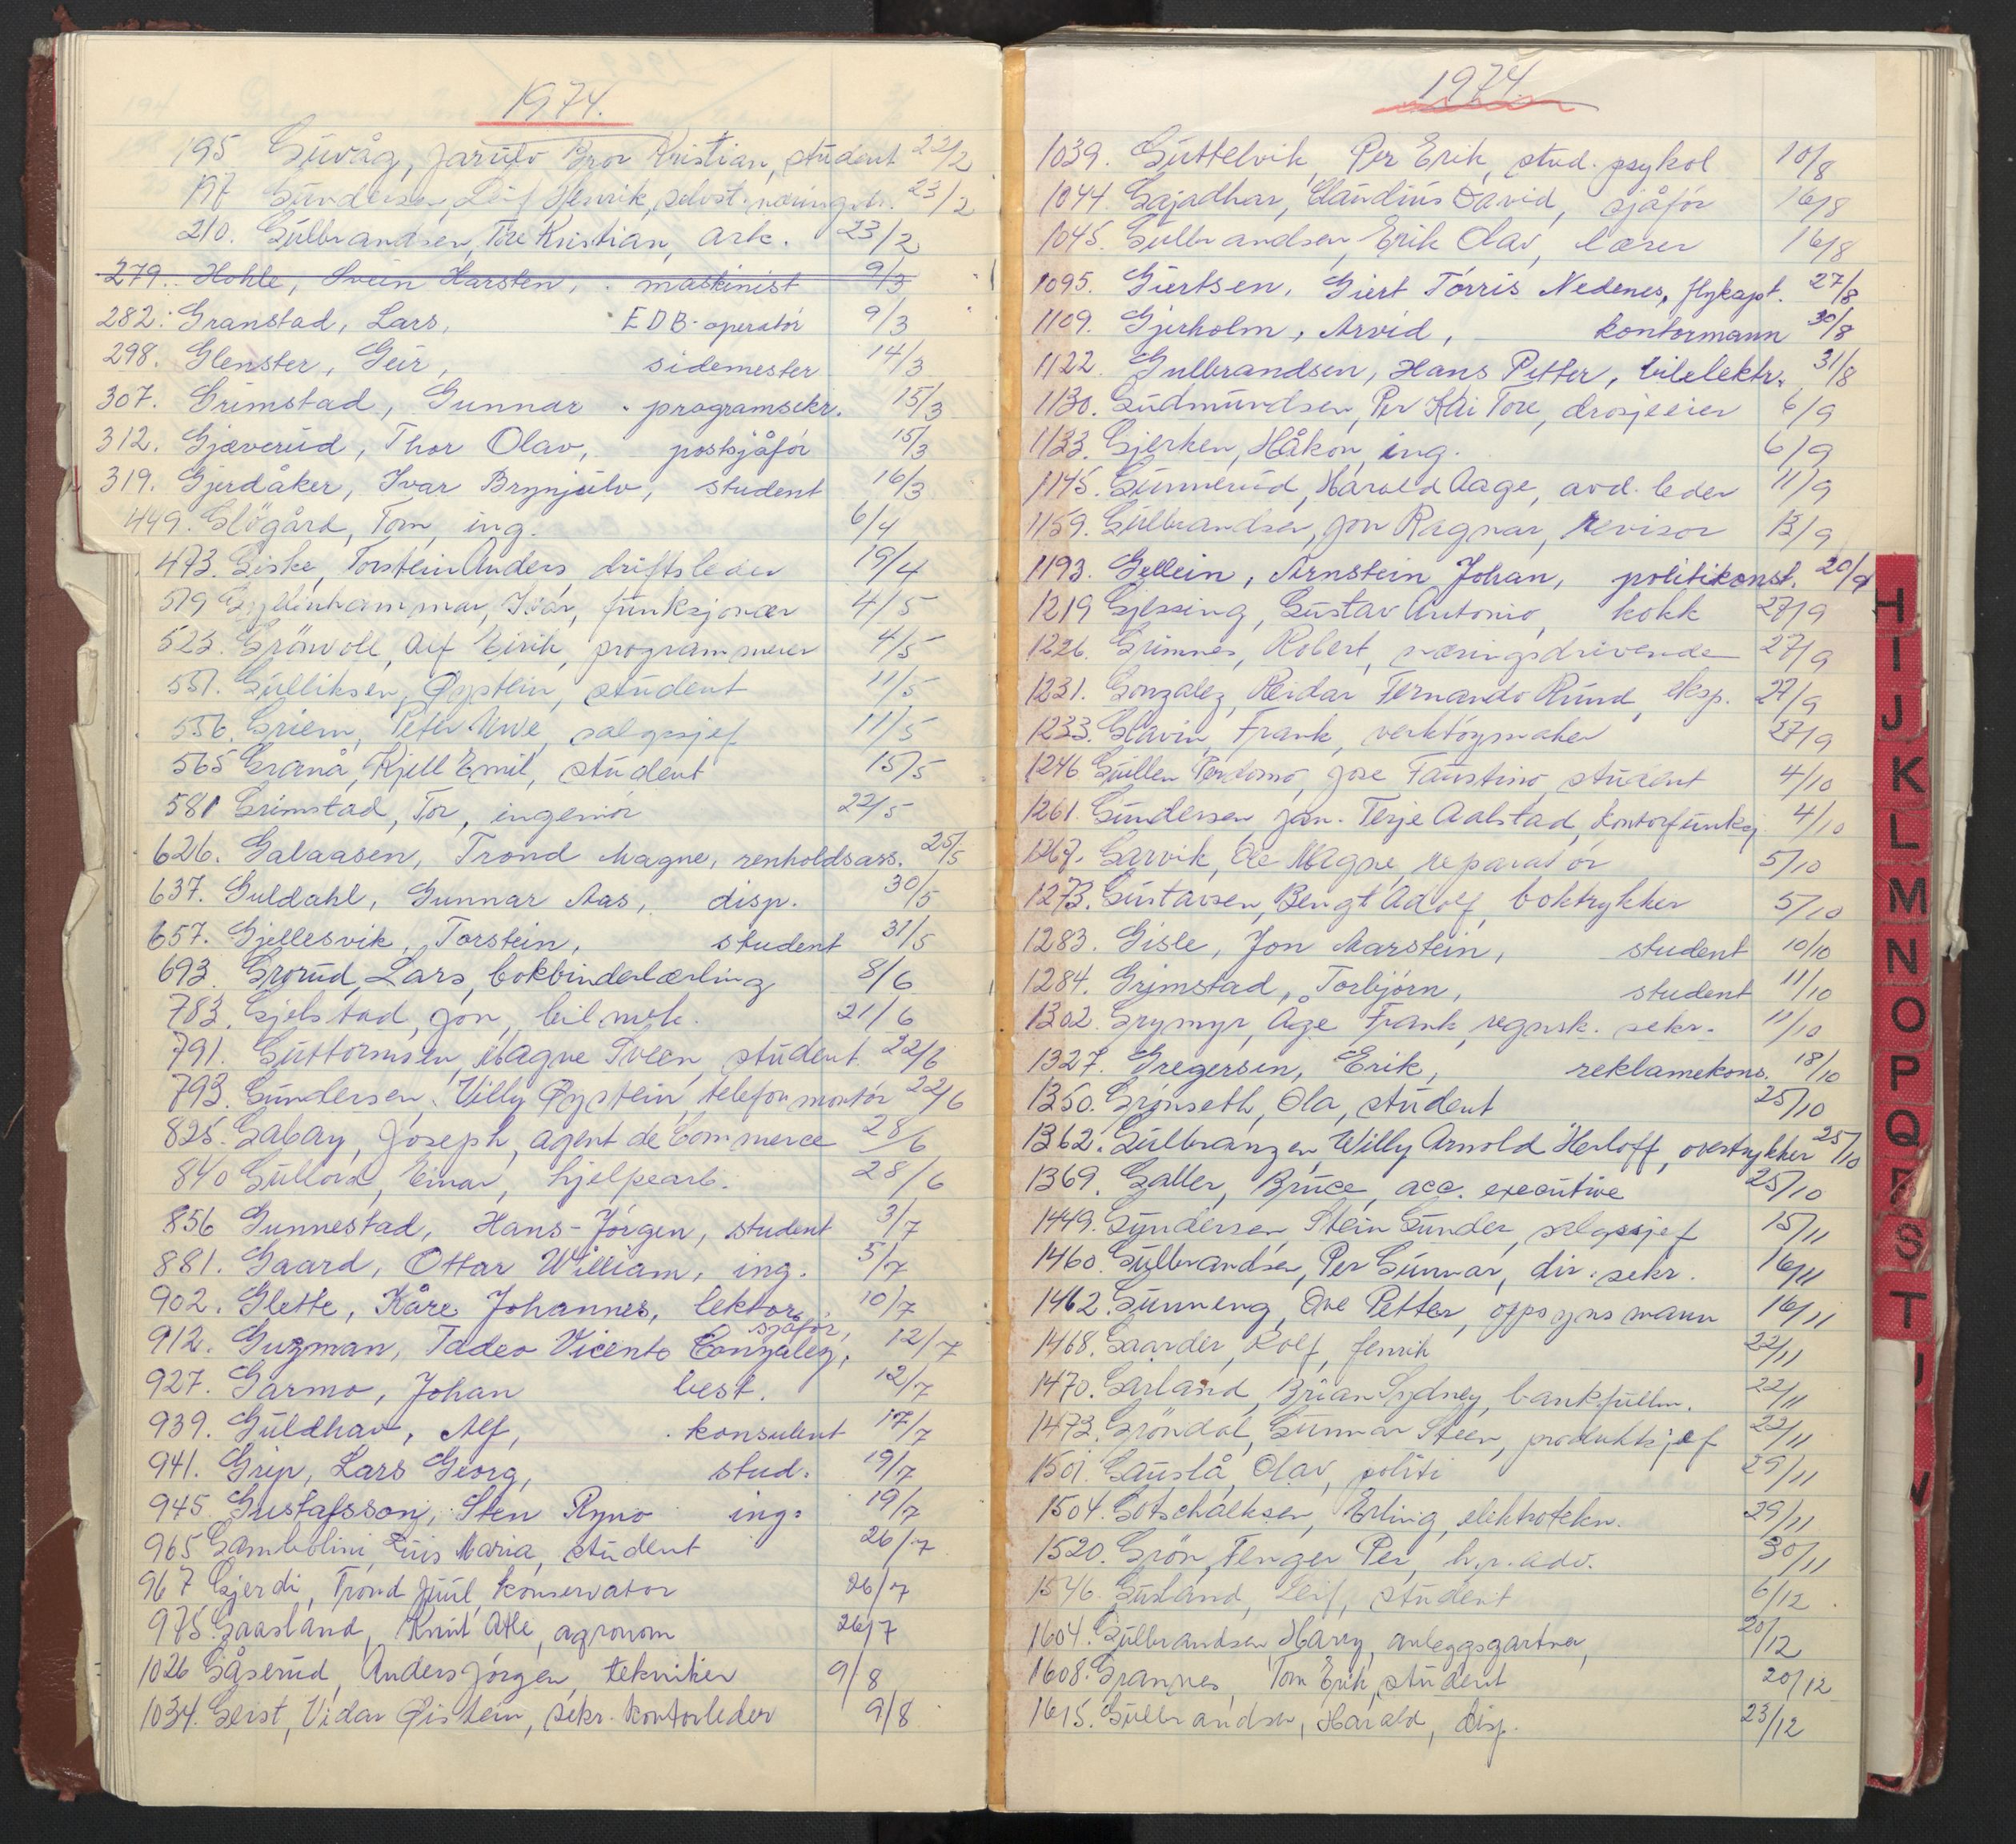 1974.
195 Guvåg, Jarulv Bror Kristian, student 22/2
197 Gundersen, Leif Henrik, selvst. næringsdr. 23/2
210. Gulbrandsen, Tore Kristian, ark. 23/2
279. Hohle, Svein Karsten, maskinist 9/3
282. Granstad, Lars, EDB-operatör 9/3
298. Glenster, Geir, sidemester 14/3
307. Grimstad, Gunnar programsekr. 15/3
312. Gjæverud, Thor Olav, postsjåför 15/3
319. Gjerdåker, Ivar Brynjulv, student 16/3
449. Glögård, Tom, ing. 6/4
473. Giske, Torstein Anders, driftsleder 19/4
519 Gyldenhammar, Ivar, funksjonær 4/5
523. Grönvoll, Alf Eirik, programmerer 4/5
551. Gulliksen, Øystein, student 11/5
556. Griem, Peter Uwe, salgssjef 11/5
565 Granå, Kjell Emil, student 15/5
581 Grimstad, Tor, ingeniör 22/5
626. Galaasen, Trond Magne, renholdsass. 25/5
637. Guldahl, Gunnar Aas, disp. 30/5
657. Gjellesvik, Torstein, student 31/5
693. Grorud, Lars, bokbinderlærling 8/6
783. Gjelstad, Jon, bilmek. 21/6
791. Guttormsen, Magne Sveen, student 22/6
793. Gundersen, Villy Øystein, telefonmontör 22/6
825. Gabay, Joseph, agent de Commerce 28/6
840 Gullord, Einar, hjelpearb. 28/6
856 Gunnestad, Hans-Jörgen, student 3/7
881. Gaard, Ottar William, ing. 5/7
902. Glette, Kåre Johannes, lektor 10/7
912. Guzman, Tadeo Vicente Gonzalez, sjåför, 12/7
927. Garmo, Johan best. 12/7
939. Guldhav, Alf, konsulent 17/7
941. Grip, Lars Georg, stud. 19/7
945. Gustafsson, Sten Ryno ing. 19/7
965 Gambolini, Luis Maria, student 26/7
967 Gjerdi, Trond Juul, konservator 26/7
975. Gaasland, Knut Atle, agronom 26/7
1026 Gåserud, Anders Jörgen, tekniker 9/8
1034. Geist, Vidar Øistein, sekr. kontorleder 9/8
1974.
1039. Guttelvik, Per Erik, stud. psykol 10/8
1044. Gajadhar, Claudius David, sjåför 16/8
1045. Gulbrandsen, Erik Olav, lærer 16/8
1095. Giertsen, Giert Torris Nedenes, flykapt. 27/8
1109. Gjerholm, Arvid, kontormann 30/8
1122. Gulbrandsen, Hans Petter, bilelektr. 31/8
1130. Gudmundsen, Per Kai Tore, drosjeeier 6/9
1133. Gjerken, Håkon, ing. 6/9
1145. Gunnerud, Harald Aage, avd. leder 11/9
1159. Gulbrandsen, Jon Ragnar, revisor 13/9
1193. Gellein, Arnstein Johan, politikonst. 20/9
1219 Gjessing, Gustav Antonio, kokk 27/9
1226. Grimnes, Robert, næringsdrivende 27/9
1231. Gonzalez, Reidar Fernando Rund, eksp. 27/9
1233. Glavin, Frank, verktöymaker 27/9
1246 Guillen Perdomo, Jose Faustino, student 4/10
1261. Gundersen, Jan-Terje Aalstad, kontorfunksj. 4/10
1267. Garvik, Ole Magne, reparatör 5/10
1273. Gustavsen, Bengt Adolf, boktrykker 5/10
1283. Gisle, Jon Marstein, student 10/10
1284. Grimstad, Torbjörn, student 11/10
1302. Grymyr, Åge Frank, regnsk. sekr. 11/10
1327. Gregersen, Erik, reklamekons. 18/10
1350. Grönseth, Ola, student 25/10
1362. Gulbranzen, Willy Arnold Herloff, overtrykker 25/10
1369. Galler, Bruce, acc. executive 25/10
1449. Gundersen, Stein Gunder, salgssjef 15/11
1460. Gulbrandsen, Per Gunnar, dir. sekr. 16/11
1462. Gunneng, Ove Petter, oppsynsmann 16/11
1468. Gaarder, Rolf, fenrik 22/11
1470. Garland, Brian Sydney, bankfullm. 22/11
1473. Gröndal, Gunnar Steen, produktsjef 22/11
1501. Gauslå, Olav, politi 29/11
1504. Gotschalksen, Erling, elektrotekn. 29/11
1520. Grön, Fenger Per, h.r.adv. 30/11
1546. Gusland, Leif, student 6/12
1604. Gulbrandsen, Harry, anleggsgartner, 20/12
1608. Grannes, Tom Erik, student 20/12
1615. Gulbrandsen, Harald, disp. 23/12
H
I
J
K
L
M
N
O
P
Q
S
T